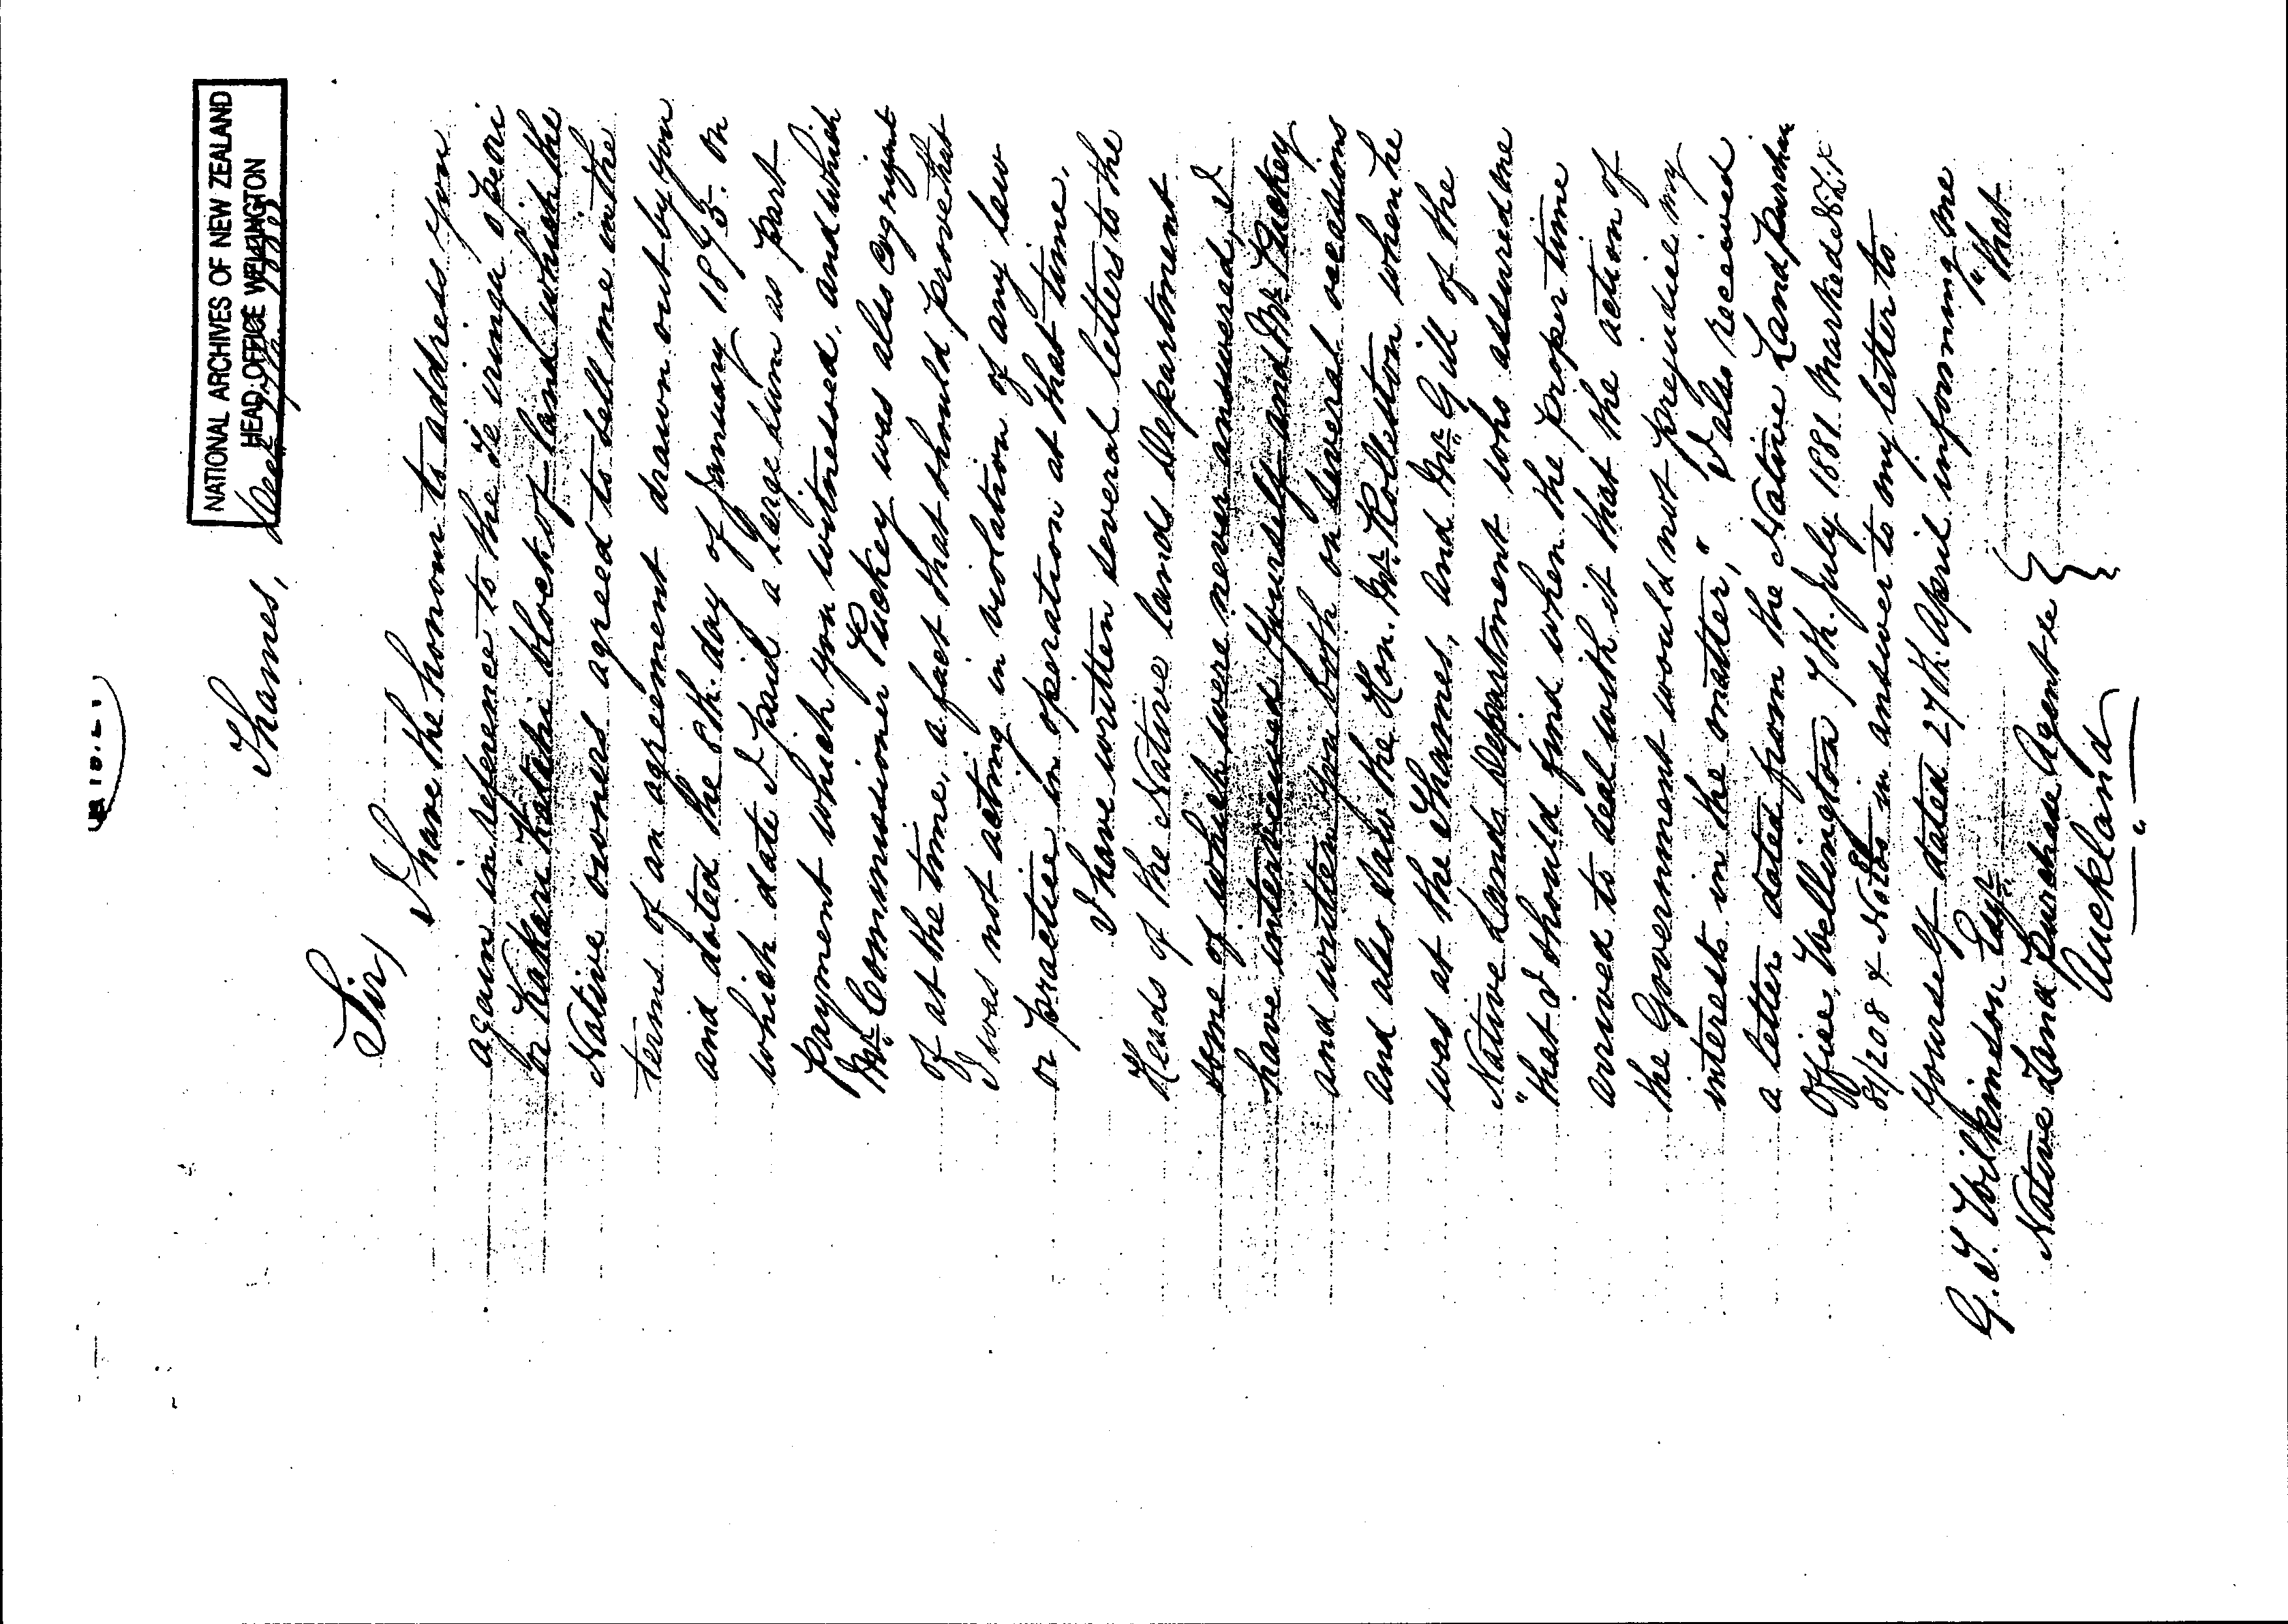 NATIONAL ARCHIVES OF NEW ZEALAND
HEAD OFFICE WELLINGTON
Thames,
Sir,
I have the honour to address you
again in reference to the Te uringa peari
or Kakari Katahi block of land which the
Native owners agreed to sell me on the
terms of an agreement drawn out by you
and dated the 8th. day of January 1875. on
which date I paid a large sum as part
payment which you witnessed, and which
Mr. Commissioner Puckey was also cognizant
of at the time, a fact that should prove that
I was not acting in violation of any law
or practice in operation at that time.
I have written several letters to the
Heads of the Native lands Department
some of which were never answered, I
have interviewed yourself and Mr. Puckey
and written you both on several occasions
and also saw the Hon. Mr. Rolleston when he
was at the Thames, and Mr. Gill of the
Native Lands Department who assured me
"that I should find when the proper time
arrived to deal with it that the action of
the Government would not prejudice my
interests in the matter," I also received
a letter dated from the Native Land Purchase
Office, Wellington 7th. July 1881 Marked N.L.P.
81/208 & in answer to my letter to
yourself dated 27th. April informing me
"that
G. T. Wilkinson Esq.
Native Land Purchase Agent &c
Auckland